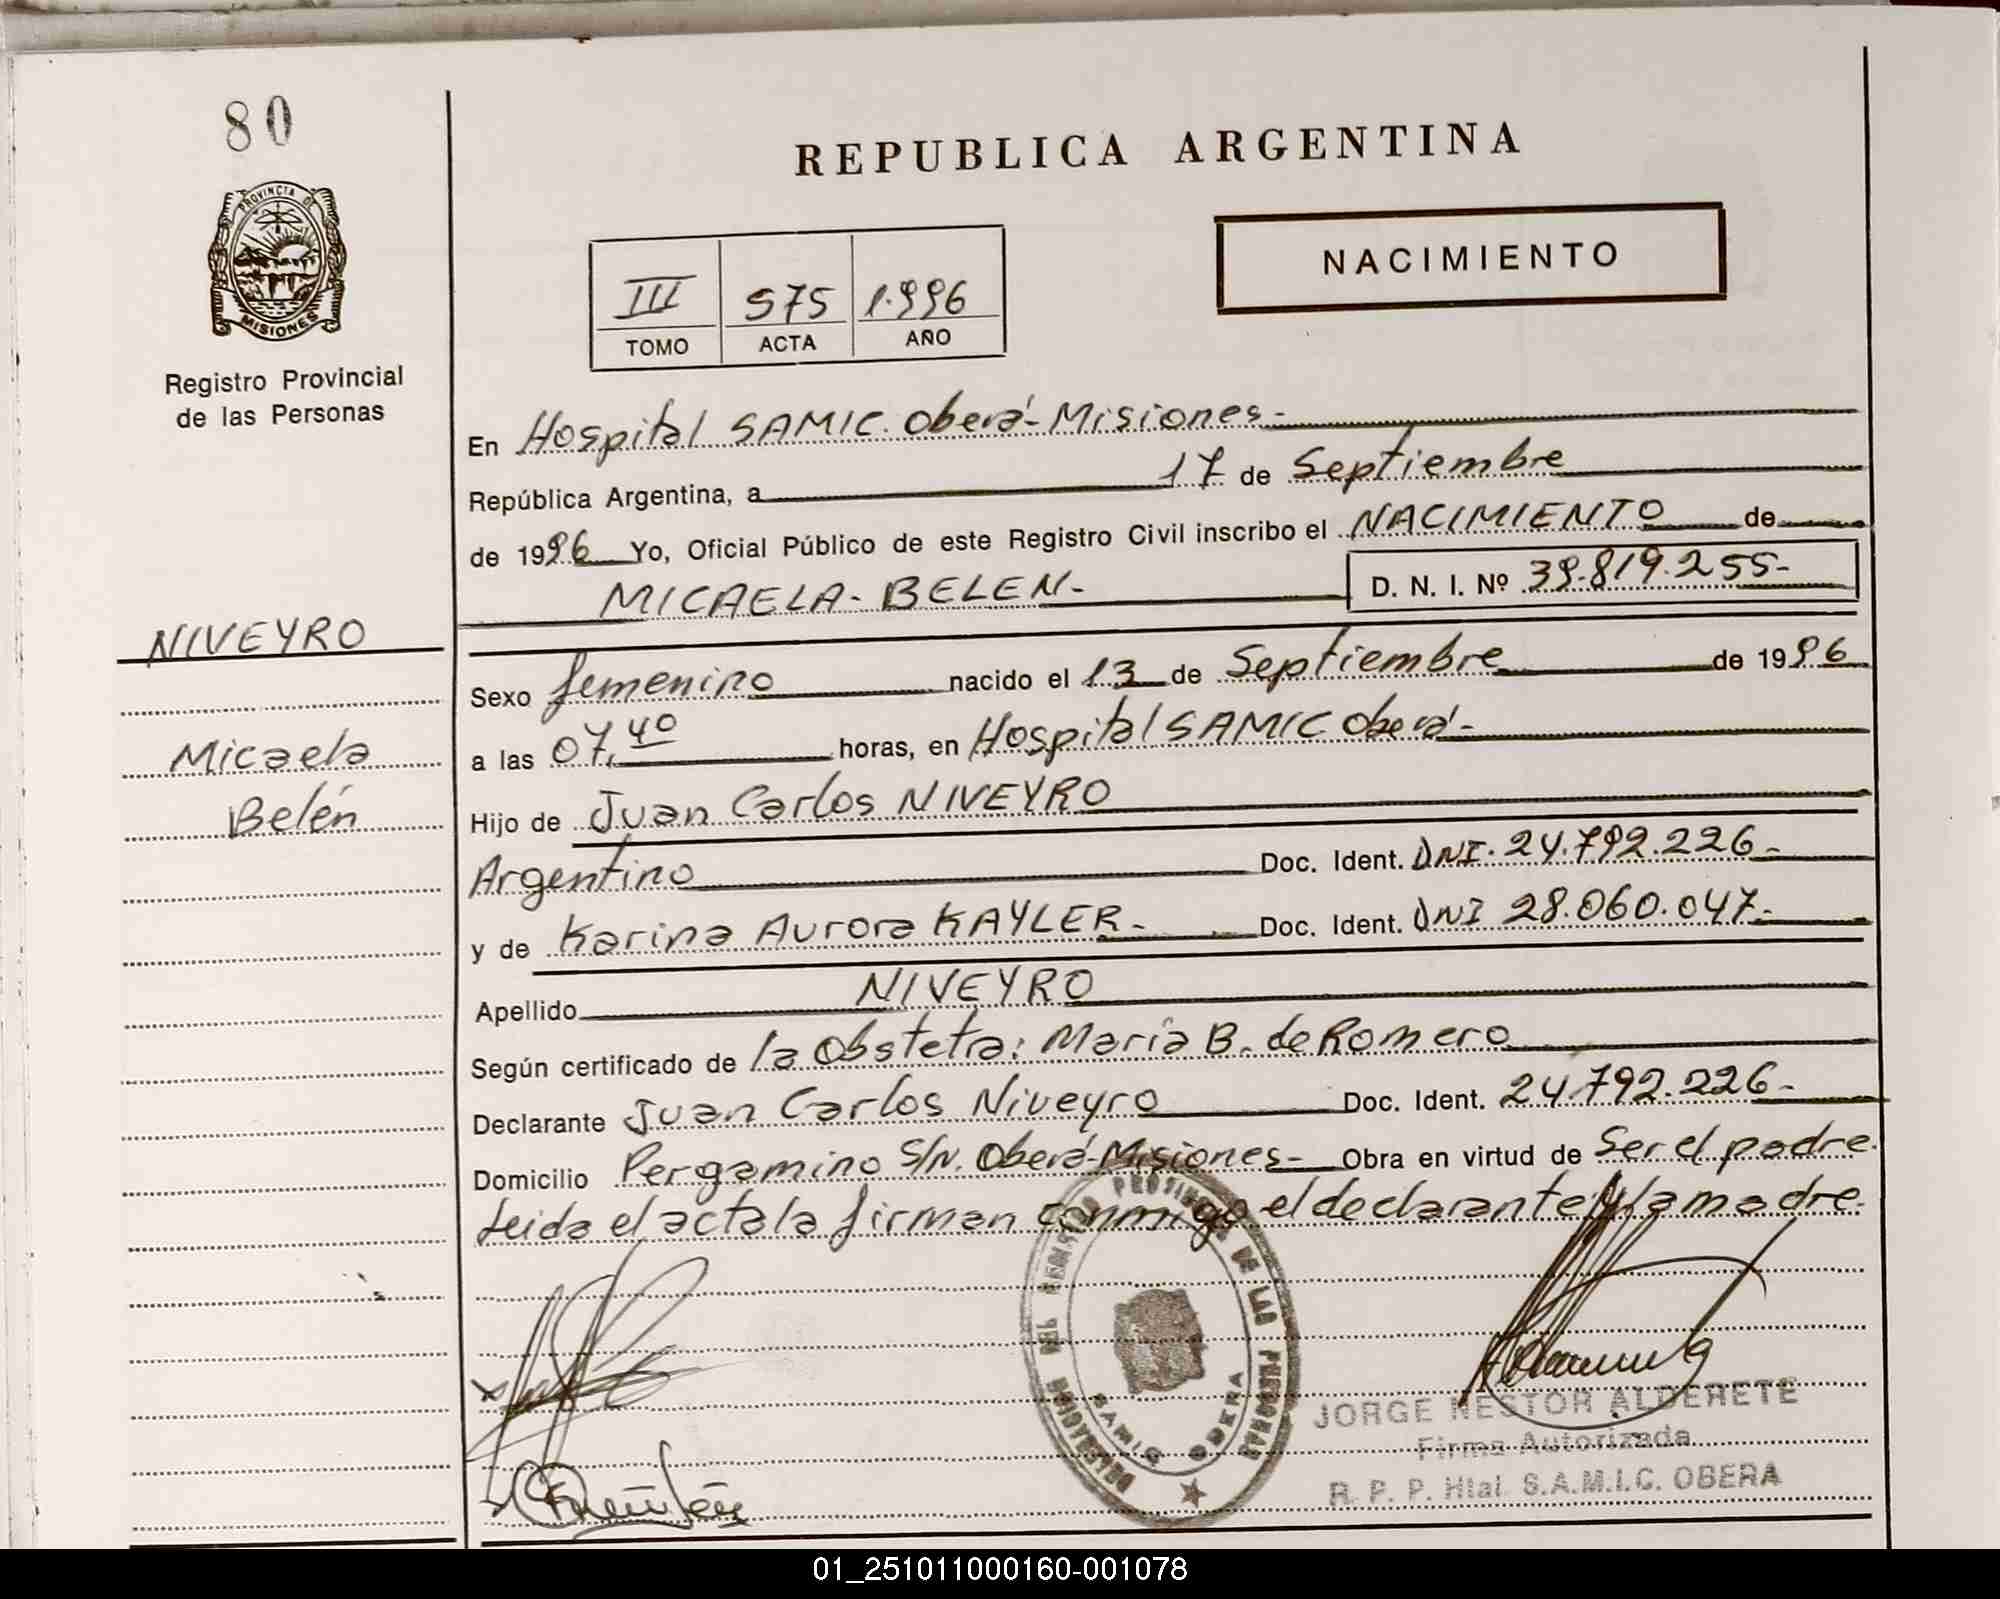 80
REPUBLICA ARGENTINA
NACIMIENTO
III 575 1.996
TOMO ACTA AÑO
PROVINCIA DE
MISIONES
Registro Provincial
de las Personas
En Hospital SAMIC. Oberá-Misiones-
República Argentina, a 17 de Septiembre
de 1996 Yo, Oficial Público de este Registro Civil inscribo el NACIMIENTO de
MICAELA-BELEN- D. N. I. Nº 39.819.255-
NIVEYRO
Micaela
Belén
Sexo femenino nacido el 13 de Septiembre de 1996
a las 07,40 horas, en Hospital SAMIC Oberá-
Hijo de Juan Carlos NIVEYRO
Argentino Doc. Ident. DNI. 24.792.226-
y de Karina Aurora KAYLER- Doc. Ident. DNI 28.060.047-
Apellido NIVEYRO
Según certificado de la Obstetra: María B. de Romero
Declarante Juan Carlos Niveyro Doc. Ident. 24.792.226-
Domicilio Pergamino S/N. Oberá-Misiones- Obra en virtud de Ser el padre.
Leida el acta la firman conmigo el declarante y la madre.
REGISTRO PROVINCIAL DE LAS PERSONAS
SAMIC OBERA
JORGE NESTOR ALDERETE
Firma Autorizada
R. P. P. Htal. S.A.M.I.C. OBERA
01_251011000160-001078